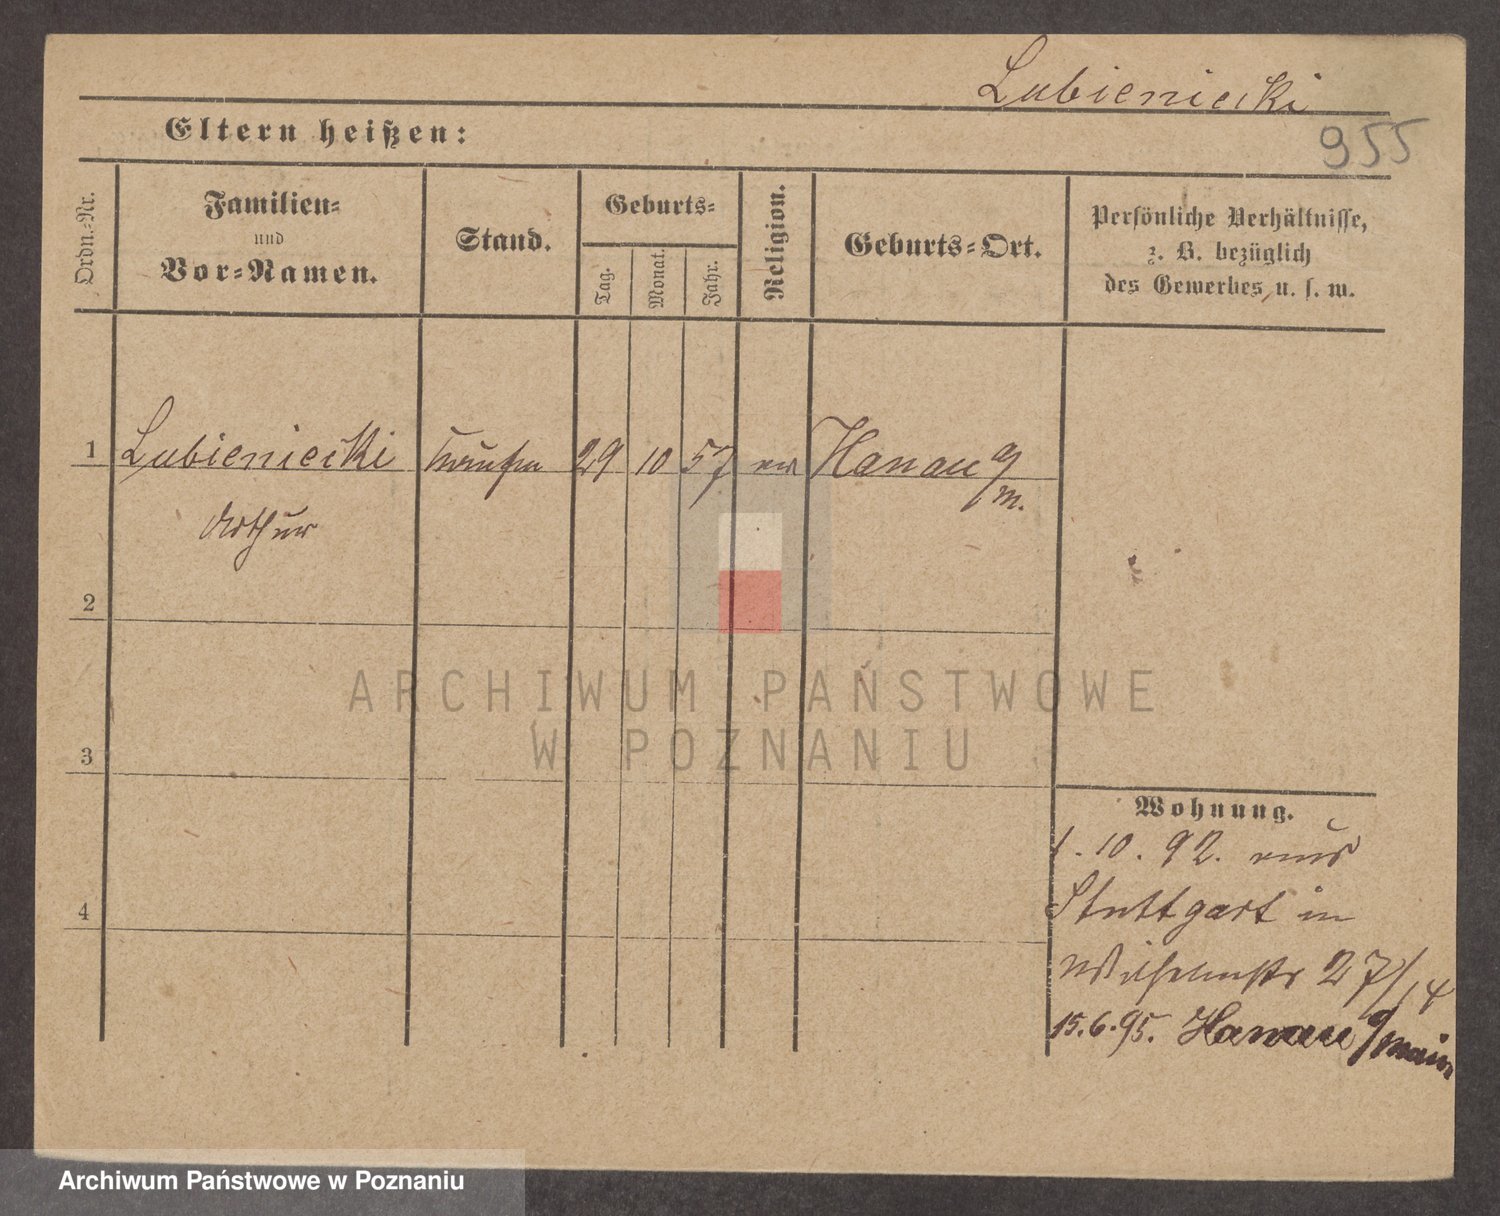 Lubieniecki
955
Eltern heißen:
Ordn.-Nr.
Familien-
und
Vor-Namen.
Stand.
Geburts-
Tag.
Monat.
Jahr.
Religion.
Geburts-Ort.
Persönliche Verhältnisse,
z. B. bezüglich
des Gewerbes u. s. w.
1 Lubieniecki 29 10 57 Hanau a/m.
Arthur
2
3
4
Wohnung.
1. 10. 92. aus
Stuttgart in
Wilhelmstr 27/14
15.6.95. Hanau a/main
ARCHIWUM PAŃSTWOWE
W POZNANIU
Archiwum Państwowe w Poznaniu